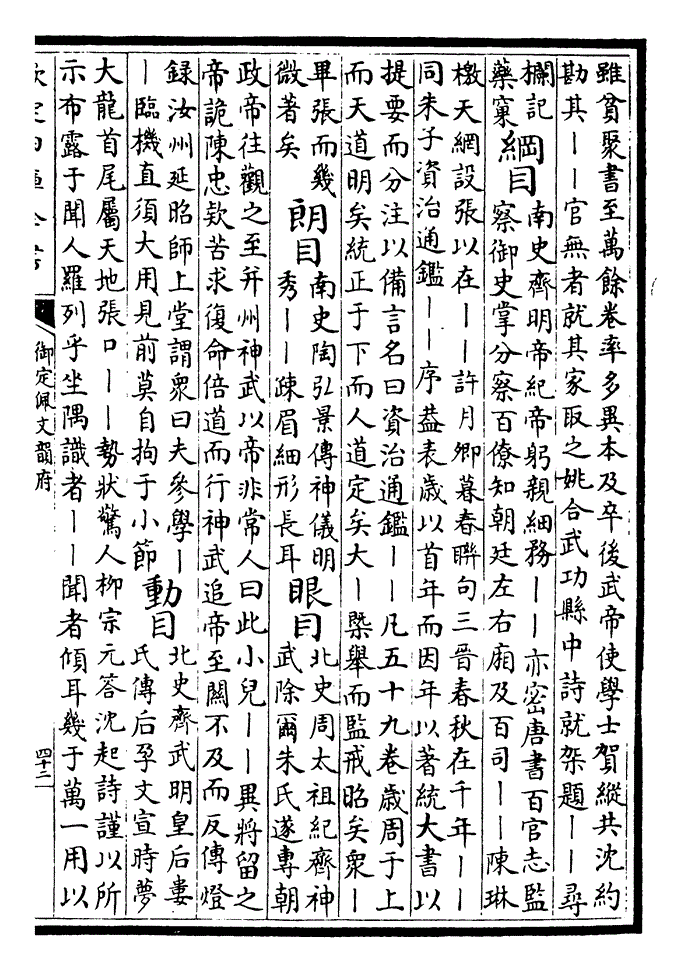 雖貧聚書至萬餘卷率多異本及卒後武帝使學士賀縱共沈約
勘其——官無者就其家取之姚合武功縣中詩就架題——尋
欄記
藥窠
綱目
南史齊明帝紀帝躬親細務——亦密唐書百官志監
察御史掌分察百僚知朝廷左右廂及百司——陳琳
檄天網設張以在——許月卿暮春聯句三晉春秋在千年——
同朱子資治通鑑——序葢表歲以首年而因年以著統大書以
提要而分注以備言名曰資治通鑑——凡五十九卷歲周于上
而天道明矣統正于下而人道定矣大—槩舉而監戒昭矣衆—
畢張而幾
微著矣
朗目
南史陶弘景傳神儀明
秀——疎眉細形長耳
眼目
北史周太祖紀齊神
武除爾朱氏遂專朝
政帝往觀之至并州神武以帝非常人曰此小兒——異將留之
帝詭陳忠欵苦求復命倍道而行神武追帝至關不及而反傳燈
録汝州延昭師上堂謂衆曰夫參學—
—臨機直須大用見前莫自拘于小節
動目
北史齊武明皇后婁
氏傳后孕文宣時夢
大龍首尾屬天地張口——勢狀驚人柳宗元答沈起詩謹以所
示布露于聞人羅列乎坐隅識者——聞者傾耳幾于萬一用以
欽定四庫全書
御定佩文韻府
四十二